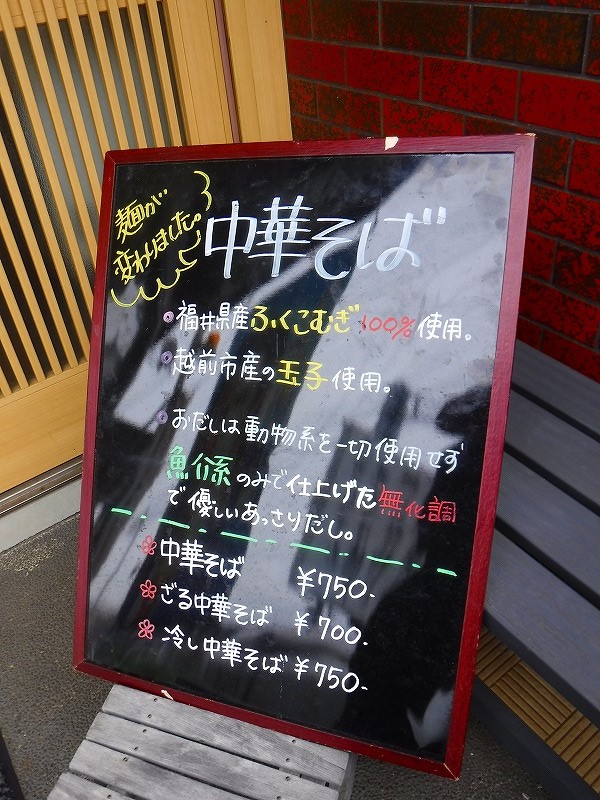 麺が
変わりました。
中華そば
福井県産ふくこむぎ100%使用。
越前市産の玉子使用。
おだしは動物系を一切使用せず
魚介系のみで仕上げた無化調
で優しいあっさりだし。
中華そば ¥750-
ざる中華そば ¥700-
冷し中華そば ¥750-